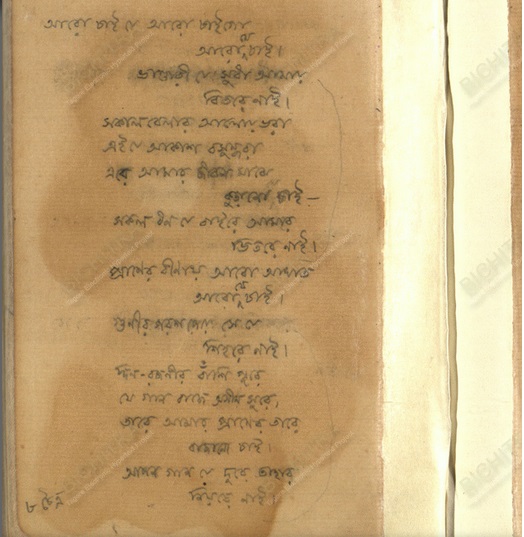 আরো চাই যে আরো চাই গো
আরো যে চাই।
ভাণ্ডারী যে সুধা আমায়
বিতরে নাই।
সকালবেলার আলোয় ভরা
এই যে আকাশ বসুন্ধরা
এরে আমার জীবন মাঝে
কুড়ানো চাই—
সকল ধন যে বাইরে আমার
ভিতরে নাই।
প্রাণের বীণায় আরো আঘাত
আরো যে চাই।
গুণীর পরশ পেয়ে সে যে
শিহরে নাই।
দিন-রজনীর বাঁশি পূরে
যে গান বাজে অসীম সুরে,
তারে আমার প্রাণের তারে
বাজানো চাই।
আপন গান যে দূরে তাহার
নিয়ড়ে নাই।
৮ চৈত্র